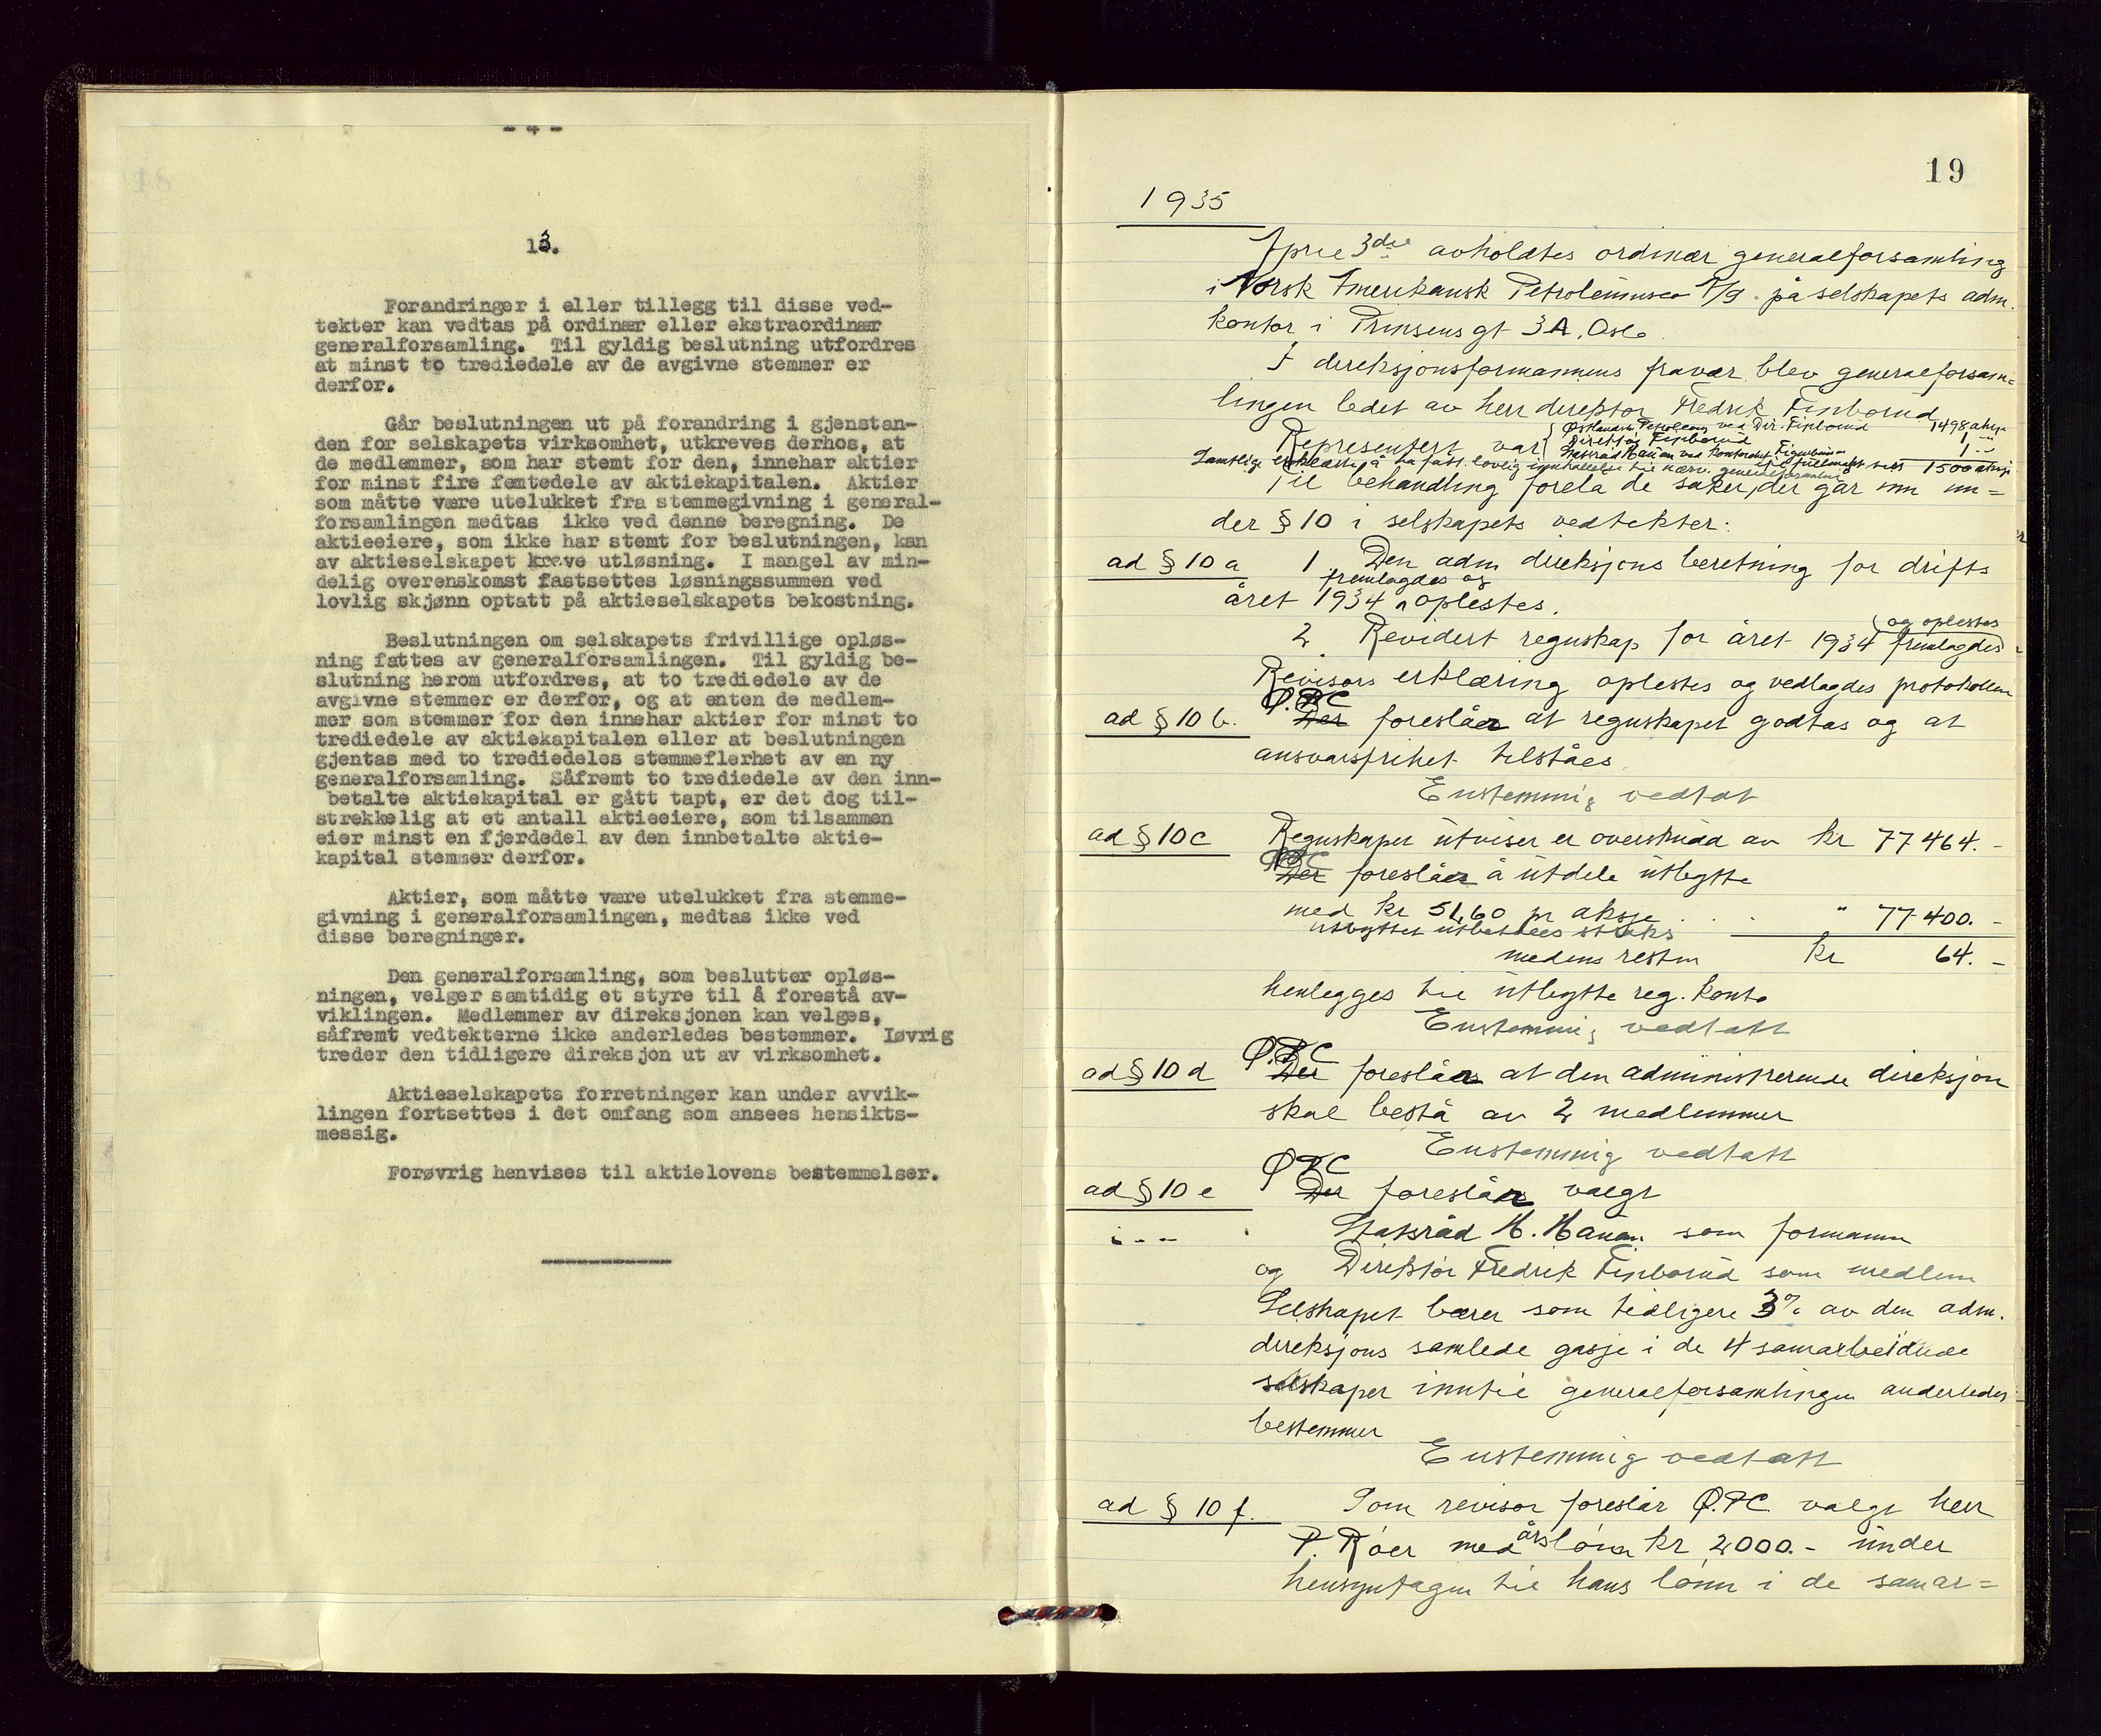 - 4 -
13.
Forandringer i eller tillegg til disse ved-
tekter kan vedtas på ordinær eller ekstraordinær
generalforsamling. Til gyldig beslutning utfordres
at minst to trediedele av de avgivne stemmer er
derfor.
Går beslutningen ut på forandring i gjenstan-
den for selskapets virksomhet, utkreves derhos, at
de medlemmer, som har stemt for den, innehar aktier
for minst fire femtedele av aktiekapitalen. Aktier
som måtte være utelukket fra stemmegivning i general-
forsamlingen medtas ikke ved denne beregning. De
aktieeiere, som ikke har stemt for beslutningen, kan
av aktieselskapet kreve utløsning. I mangel av min-
delig overenskomst fastsettes løsningssummen ved
lovlig skjønn optatt på aktieselskapets bekostning.
Beslutningen om selskapets frivillige opløs-
ning fattes av generalforsamlingen. Til gyldig be-
slutning herom utfordres, at to trediedele av de
avgivne stemmer er derfor, og at enten de medlem-
mer som stemmer for den innehar aktier for minst to
trediedele av aktiekapitalen eller at beslutningen
gjentas med to trediedeles stemmeflerhet av en ny
generalforsamling. Såfremt to trediedele av den inn-
betalte aktiekapital er gått tapt, er det dog til-
strekkelig at et antall aktieeiere, som tilsammen
eier minst en fjerdedel av den innbetalte aktie-
kapital stemmer derfor.
Aktier, som måtte være utelukket fra stemme-
givning i generalforsamlingen, medtas ikke ved
disse beregninger.
Den generalforsamling, som beslutter opløs-
ningen, velger samtidig et styre til å forestå av-
viklingen. Medlemmer av direksjonen kan velges,
såfremt vedtekterne ikke anderledes bestemmer. Iøvrig
treder den tidligere direksjon ut av virksomhet.
Aktieselskapets forretninger kan under avvik-
lingen fortsettes i det omfang som ansees hensikts-
messig.
Forøvrig henvises til aktielovens bestemmelser.
19
1935
April 3die avholdtes ordinær generalforsamling
i Norsk Amerikansk Petroleumsco A/S. på selskapets adm.
kontor i Prinsens gt 3A, Oslo.
I direksjonsformannens fravær blev generalforsam=
lingen ledet av herr direktør Fredrik Finborud
Representert var Østlandske Petroleum ved Dir. Finborud 1498 aksje
Direktør Finborud 1 --
Statsråd Hauan ved Kontorchef 1 --
til fullmakt 1500 aksje
Samtlige erklærte å ha fått lovlig innkallelse til nærv. generalforsamling
Til behandling forelå de saker, der går inn un=
der § 10 i selskapets vedtekter:
ad § 10 a 1. Den adm direksjons beretning for drifts
året 1934 fremlagdes og oplestes.
2. Revidert regnskap for året 1934 fremlagdes og oplestes
Revisors erklæring oplestes og vedlagdes protokollen
ad § 10 b. Ø.P.C. Der foreslåes at regnskapet godtas og at
ansvarsfrihet tilståes
Enstemmig vedtat
ad § 10 c Regnskapet utviser et overskudd av kr 77464.-
Ø.P.C. Der foreslåes å utdele utbytte
med kr 51,60 pr aksje . . . " 77400.-
utbyttet utbetales straks
medens resten kr 64.-
henlegges til utbytte reg. konto
Enstemmig vedtatt
ad § 10 d Ø.P.C. Der foreslåes at den administrerende direksjon
skal bestå av 2 medlemmer
Enstemmig vedtatt
ad § 10 e Ø.P.C. Der foreslåes valgt
i -- Statsråd H. Hauan som formann
og Direktør Fredrik Finborud som medlem
Selskapet bærer som tidligere 3% av den adm.
direksjons samlede gasje i de 4 samarbeidende
selskaper inntil generalforsamlingen anderledes
bestemmer
Enstemmig vedtatt
ad § 10 f. Som revisor foreslår Ø.P.C. valgt herr
P. Røer med årslønn kr 2000.- under
hensyntagen til hans lønn i de samar=